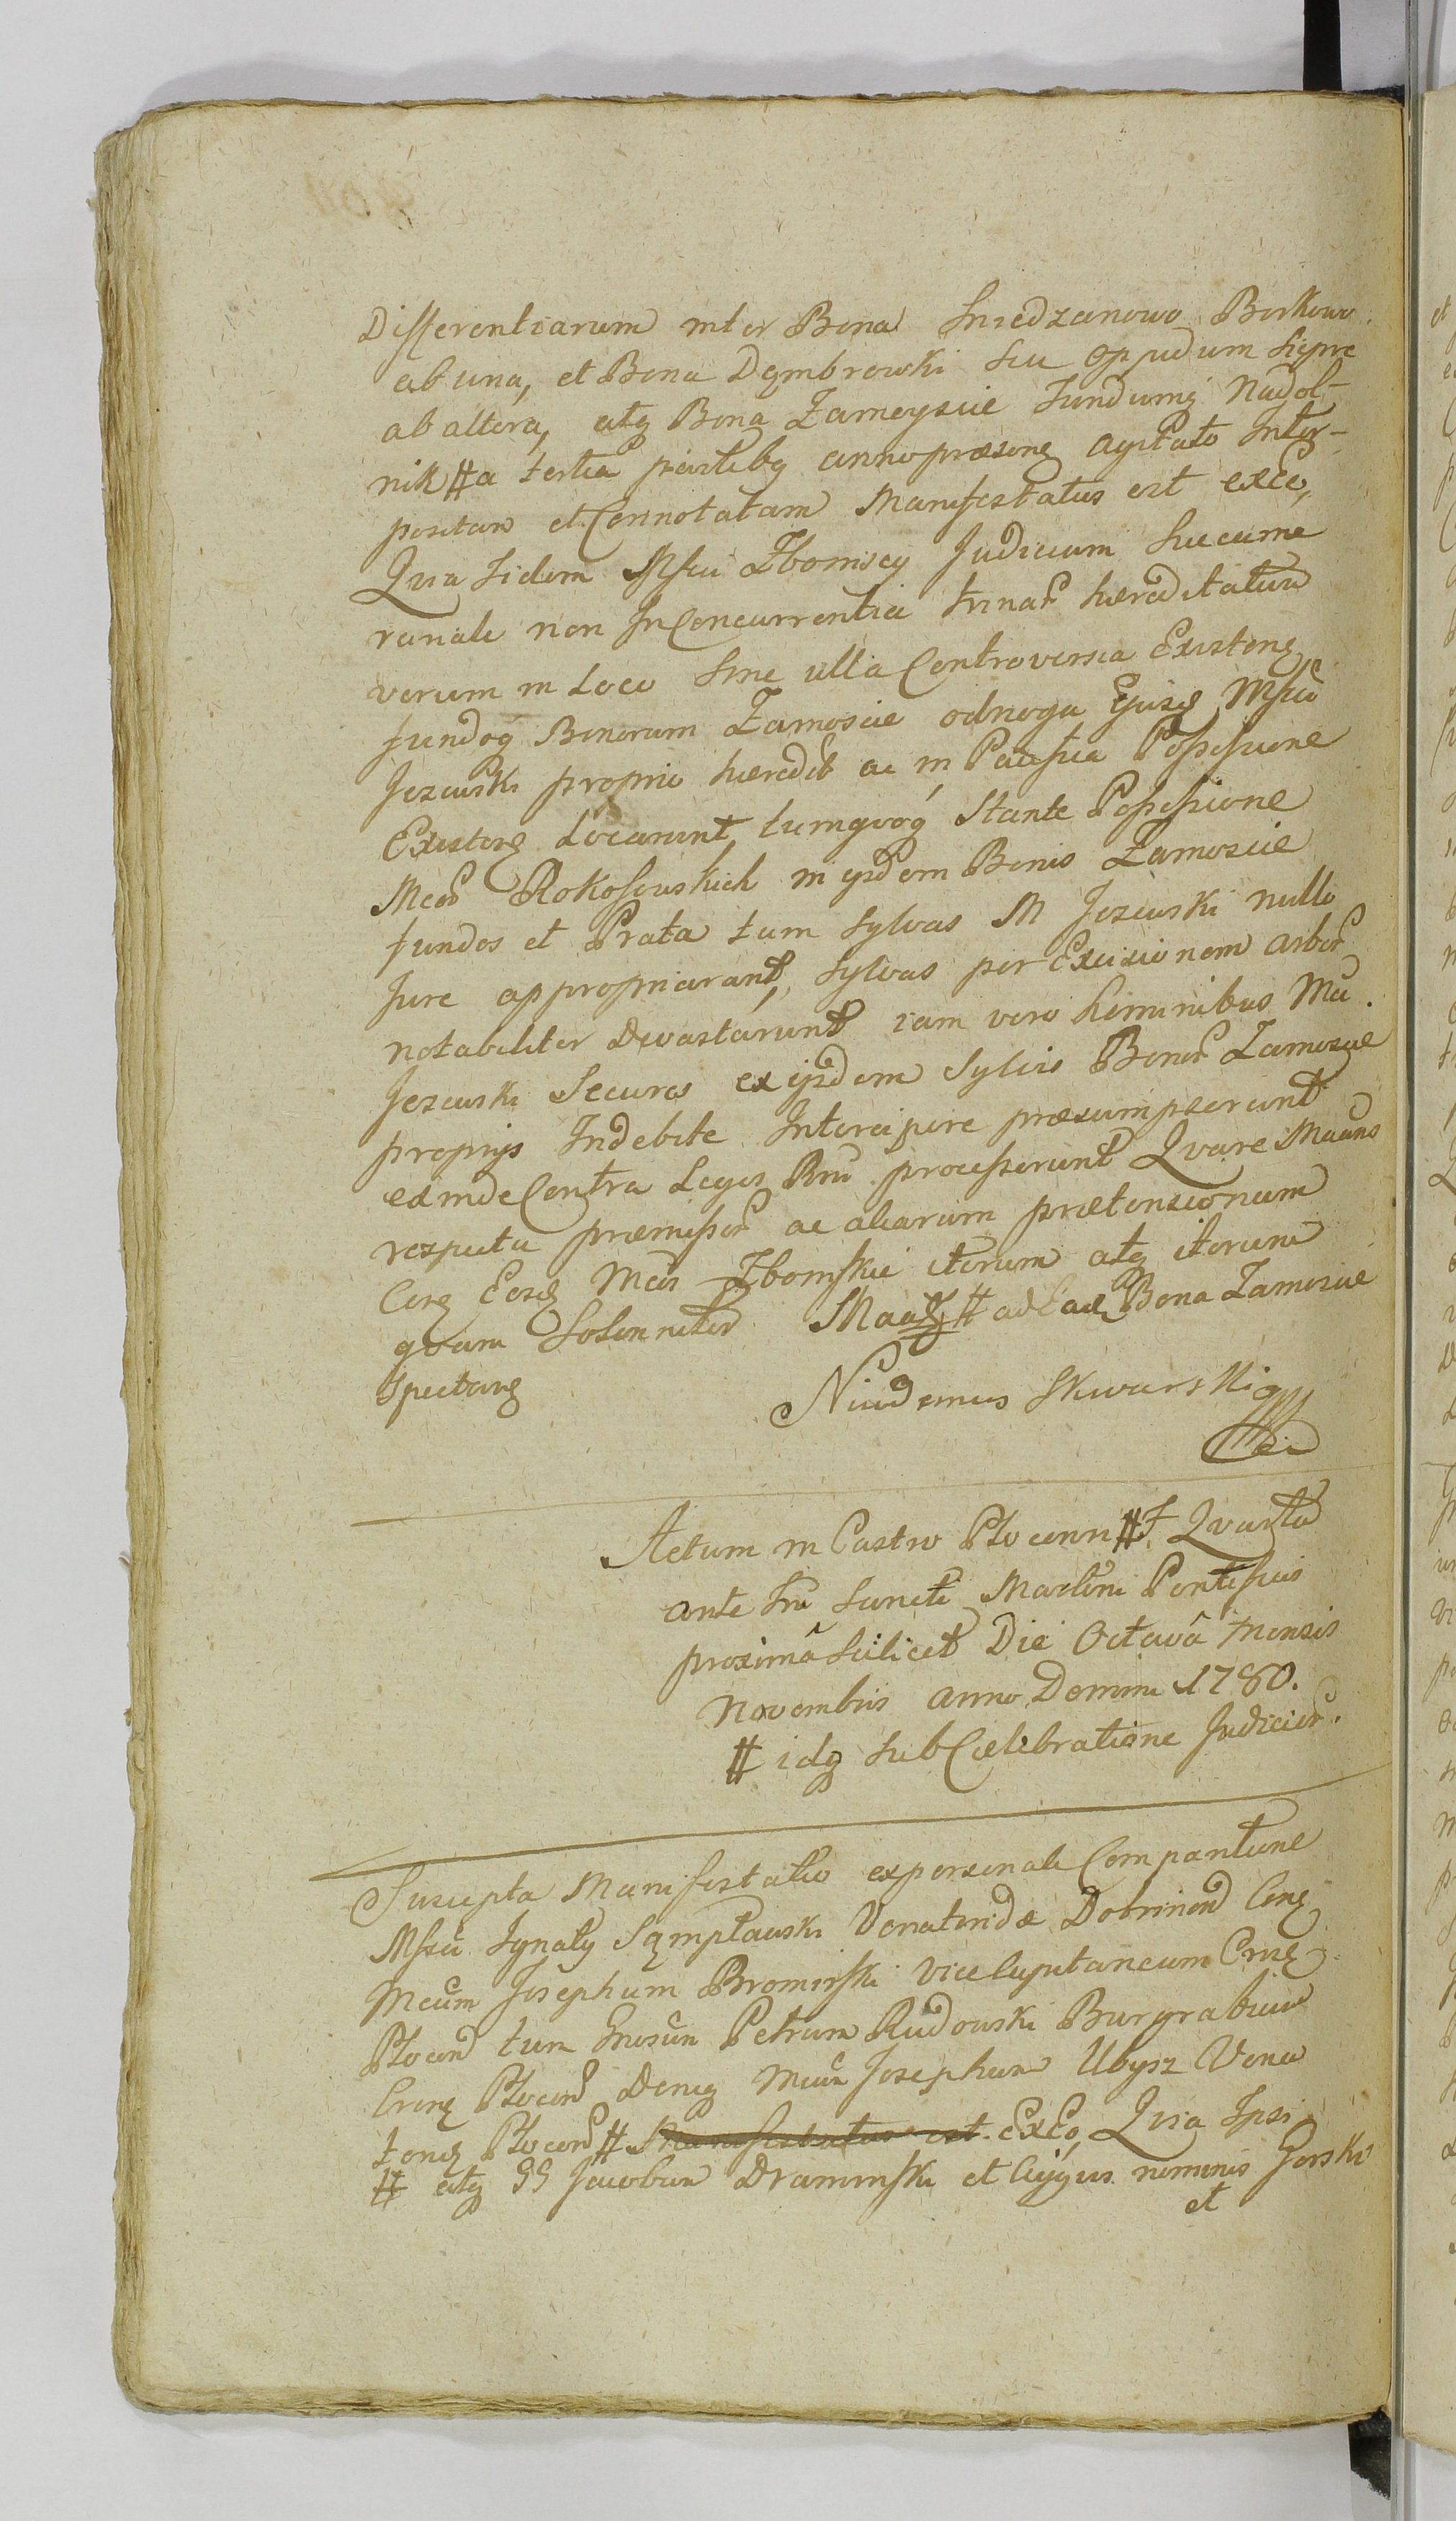 Differentiarum inter Bona Sniedzanowo Borkowo
ab una, et Bona Dąmbrowki seu Oppidum Siepre
ab altera, atq Bona Zameyscie Fundumq Nadol-
nik # a tertia partibq anno præsenq agitato Inter-
positam et Connotatam Manifestatus est exce,
Qvia Iidem Mfci Zbomscy Judicium Succame
rarale non In Concurrentia trinar hæreditatum
verum in Loco Sine ulla Controversia Existenq
fundoq Bonorum Zamoscie odnoga Ejusq Mfci
Jezewski proprio hæredit ac in Pacifica Possessione
Existenq Locarunt, tumqvoq Stante Possessione
Mcor Rokosowskich in ijsdem Bonis Zamoscie
fundos et Prata tum Sylvas M Jezewski nullo
Jure appropriarant, Sylvas per Excisionem arbor
notabiliter Devastarunt iam vero hominibus Mci
Jezewski Secures ex ijsdem Sylvis Bonor Zamoscie
proprijs Indebite Intercipere præsumpserunt
exinde Contra Leges Rni processerunt Qvare Maãns
respectu præmissor ac aliarum prætensionum
Corq Eosq Mcos Zbomskie iterum atq iterum
qvam Solenniter Maatq # ad Eaq Bona Zamoscie
Spectanq
Nicodemus Skwarski mpp
Actum in Castro Plocenn # F. Qvarta
ante Fm Sancti Martini Pontificis
proximâ Scilicet Die Octavâ Mensis
Novembris Anno Domini 1780.
# idq sub Cælebratione Judicior.
Suscepta Manifestatio ex personali Comparitione
Mfcu Ignaty Sąmpławski Venatoridæ Dobrinen Conq
Mcum Josephum Bromirski Vice Capitaneum Crnq
Plocen tum Gnosum Petrum Rudowski Burgrabium
Crenq Plocen Deniq Mcum Josephum Ubysz Vena
tonq Plocen # Manifestatus est. exEo, Qvia Ipsi
# atq GG Jacobum Dramiński et Cujgus nominis Gorski
et